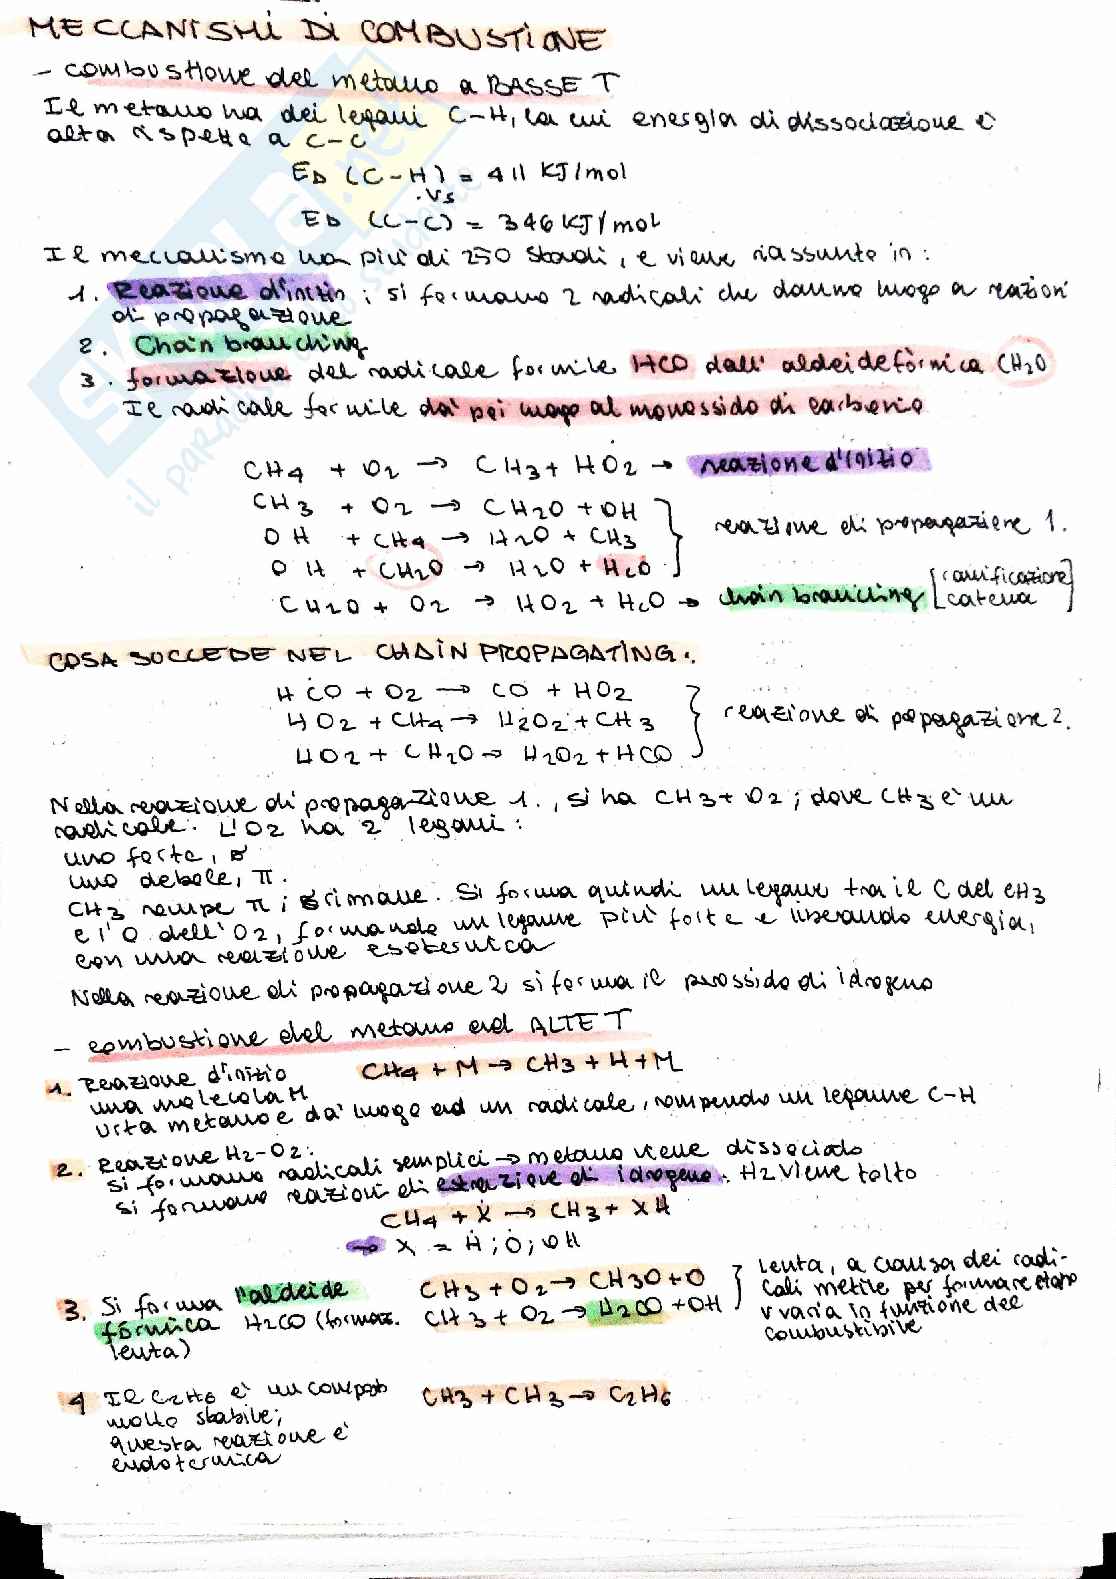 MECCANISMI DI COMBUSTIONE
- combustione del metano a BASSE T
Il metano ha dei legami C-H, la cui energia di dissociazione è
alta rispetto a C-C
ED (C-H) = 411 KJ/mol
.vs
ED (C-C) = 346 KJ/mol
Il meccanismo ha più di 250 stadi, e viene riassunto in:
1. Reazione d'inizio; si formano 2 radicali che danno luogo a reazioni
di propagazione
2. Chain branching
3. formazione del radicale formile HCO dall'aldeide fòrmica CH2O
Il radicale formile dà poi luogo al monossido di carbonio
CH4 + O2 → CH3 + HO2 → reazione d'inizio
CH3 + O2 → CH2O + OH
OH + CH4 → H2O + CH3
reazione di propagazione 1.
OH + CH2O → H2O + HCO
CH2O + O2 → HO2 + HCO → chain branching [ramificazione catena]
COSA SUCCEDE NEL CHAIN PROPAGATING.
HCO + O2 → CO + HO2
HO2 + CH4 → H2O2 + CH3
reazione di propagazione 2.
HO2 + CH2O → H2O2 + HCO
Nella reazione di propagazione 1., si ha CH3 + O2; dove CH3 è un
radicale. L'O2 ha 2 legami:
uno forte, σ
uno debole, π.
CH3 rompe π; σ rimane. Si forma quindi un legame tra il C del CH3
e l'O dell'O2, formando un legame più forte e liberando energia,
con una reazione esotermica
Nella reazione di propagazione 2 si forma il perossido di idrogeno
- combustione del metano ad ALTE T
1. Reazione d'inizio CH4 + M → CH3 + H + M
una molecola M
urta metano e dà luogo ad un radicale, rompendo un legame C-H
2. Reazione H2-O2:
si formano radicali semplici → metano viene dissociato
si formano reazioni di estrazione di idrogeno: H2 viene tolto
CH4 + Ẋ → CH3 + XH
→ X = Ḣ; Ȯ; OH
3. Si forma l'aldeide
fórmica H2CO (formaz.
lenta)
CH3 + O2 → CH3O + O
CH3 + O2 → H2CO + OH
lenta, a causa dei radi-
cali metile per formare etano
v varia in funzione del
combustibile
4 Il C2H6 è un compsto
molto stabile;
questa reazione è
endotermica
CH3 + CH3 → C2H6